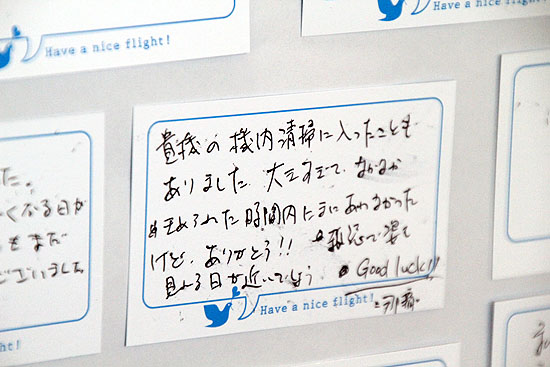 Have a nice flight!
Have a nice flight!
貴機の機内清掃に入ったことも
ありました。大きすぎて、なかなか
決められた時間内にまにあわなかった
けど、ありがとう!!
見れる日が近いでしょう Good luck!!
Have a nice flight!
た。
くなる日が
もまだ
ございました
ht!